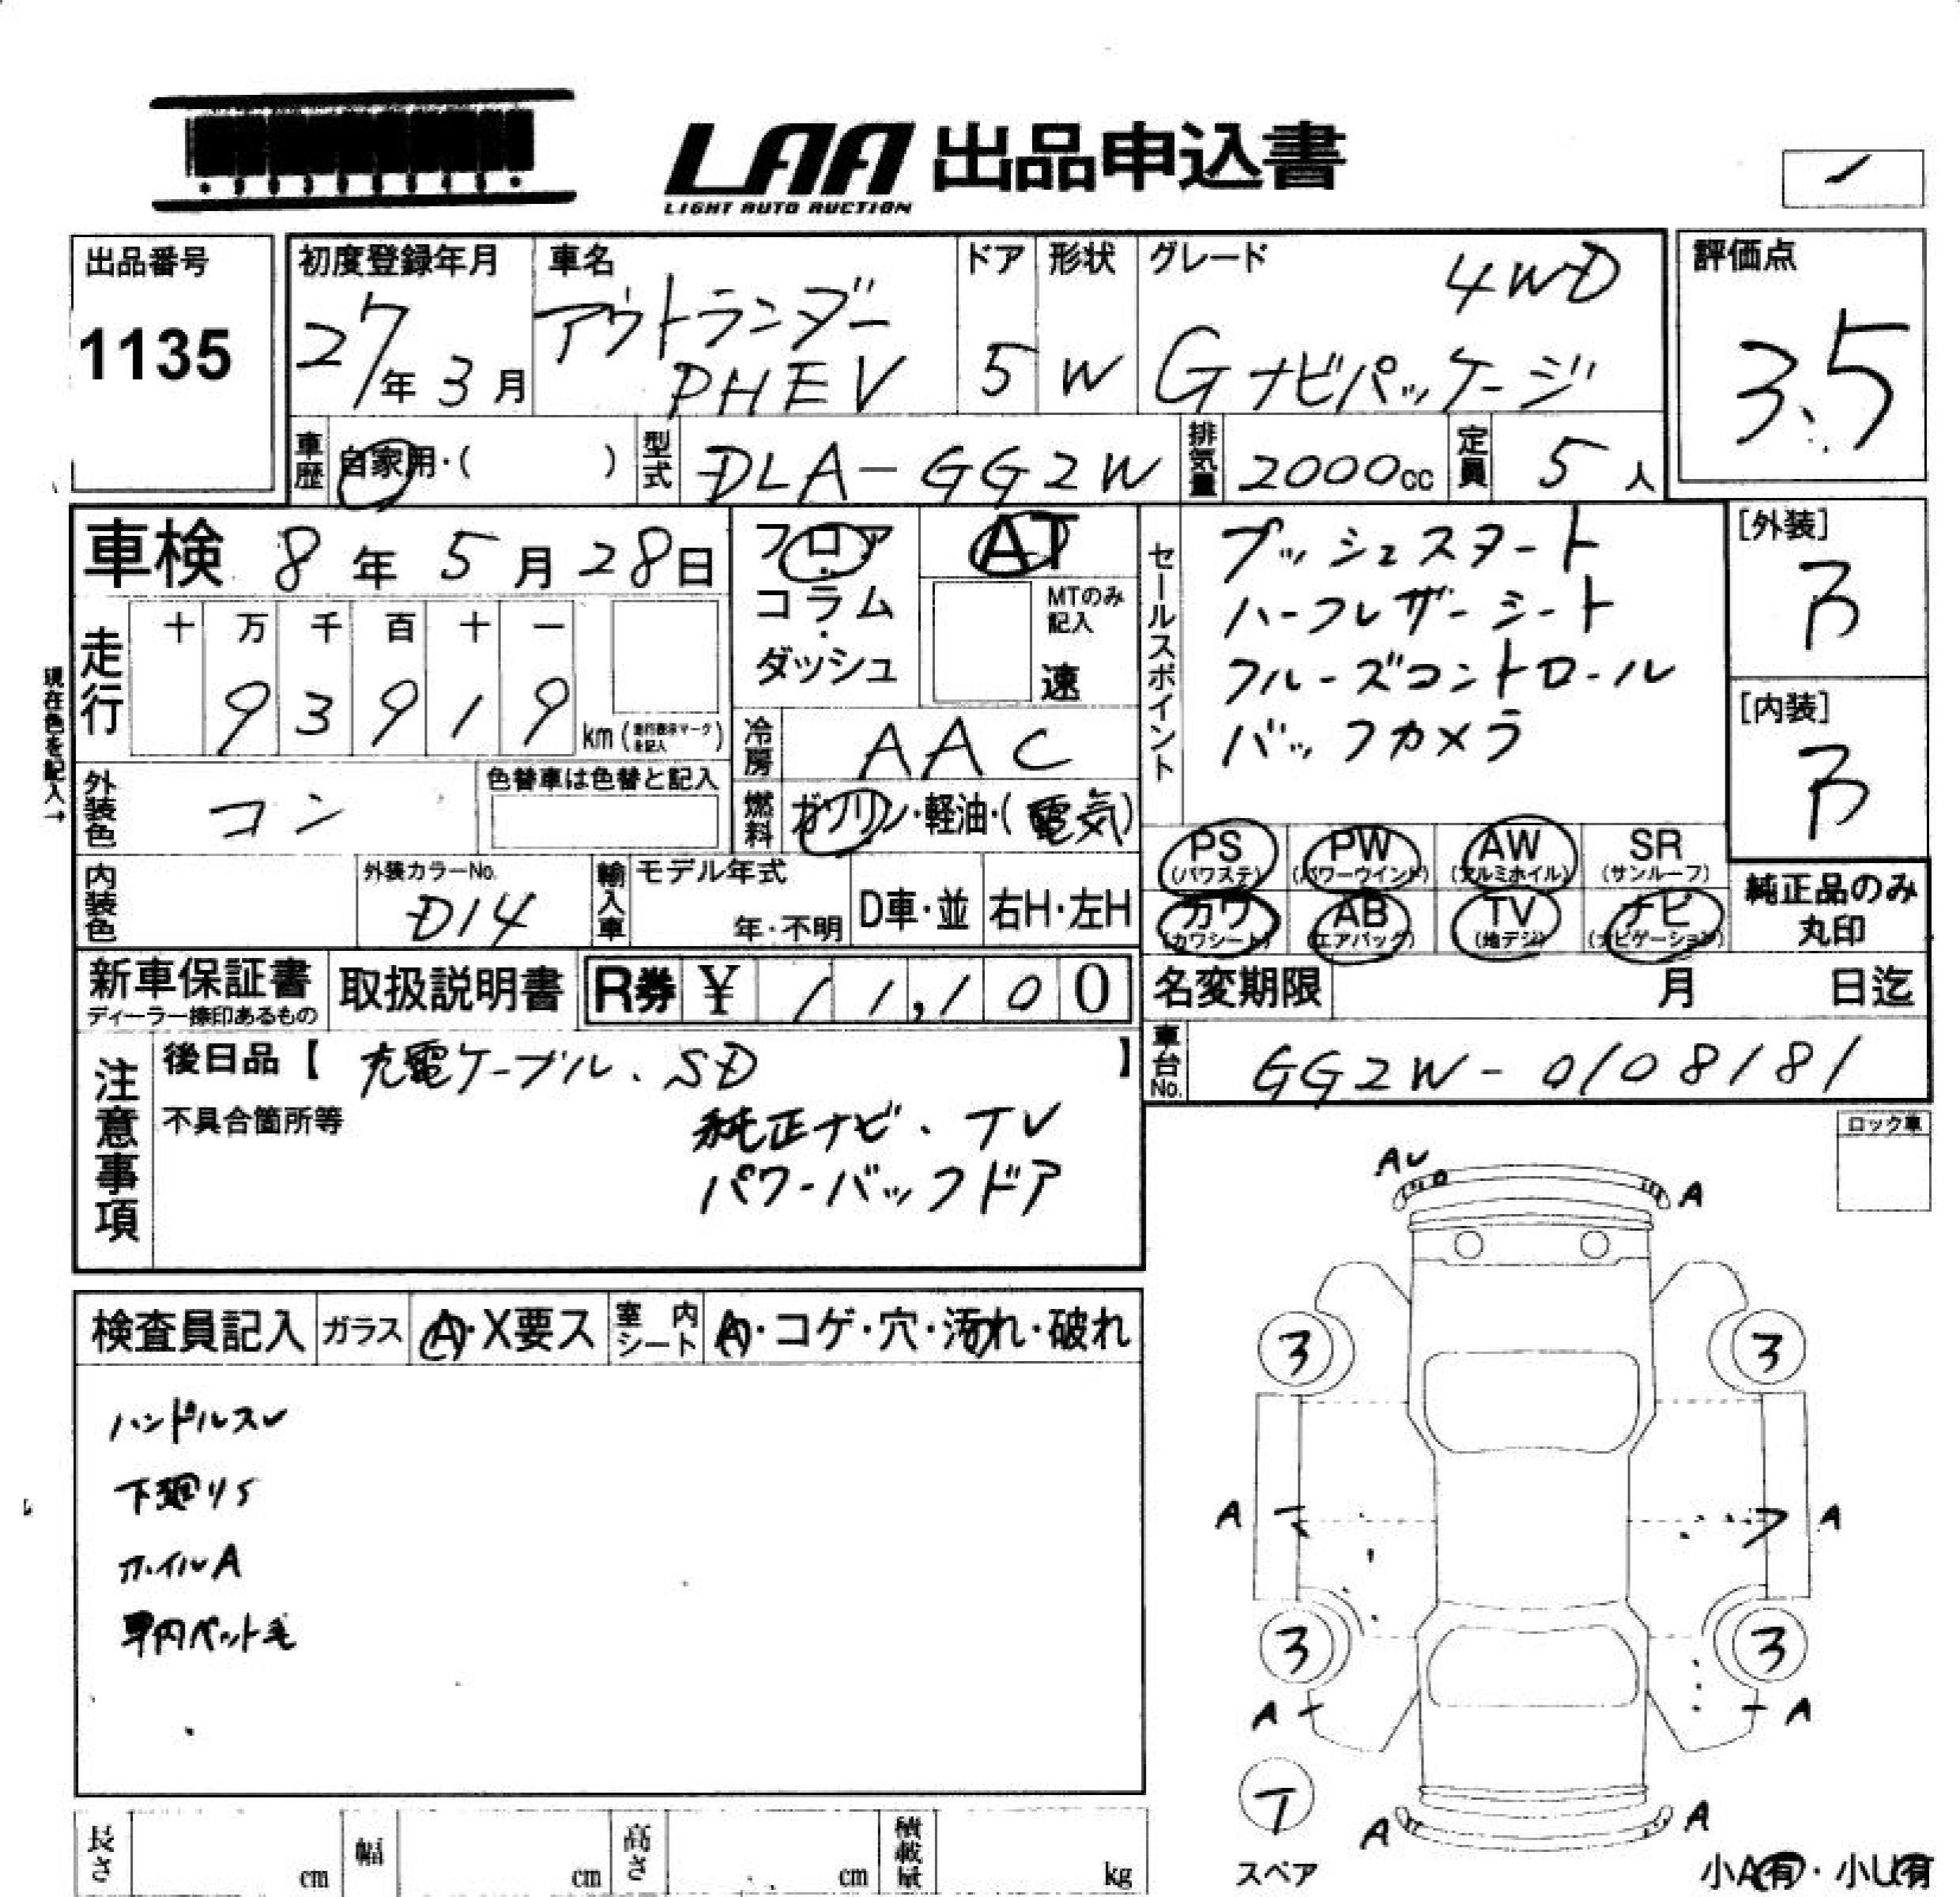 LAA 出品申込書
LIGHT AUTO AUCTION
出品番号
1135
初度登録年月
27年3月
車名
アウトランダー
PHEV
ドア
5
形状
W
グレード
4WD
Gナビパッケージ
評価点
3.5
車歴
自家用・( )
型式
DLA-GG2W
排気量
2000cc
定員
5人
車検 8年5月28日
走行
十 万 千 百 十 一
9 3 9 1 9
km(走行表示マークを記入)
現在色を記入→
フロア
・
コラム
・
ダッシュ
AT
MTのみ
記入
速
冷房
AAC
燃料
ガソリン・軽油・(電気)
外装色
コン
色替車は色替と記入
内装色
外装カラーNo.
D14
輸入車
モデル年式
年・不明
D車・並
右H・左H
セールスポイント
プッシュスタート
ハーフレザーシート
クルーズコントロール
バックカメラ
[外装]
B
[内装]
B
PS
(パワステ)
PW
(パワーウインド)
AW
(アルミホイル)
SR
(サンルーフ)
カワ
(カワシート)
AB
(エアバッグ)
TV
(地デジ)
ナビ
(ナビゲーション)
純正品のみ
丸印
新車保証書
ディーラー捺印あるもの
取扱説明書
R券 ¥ 11,100
名変期限 月 日迄
車台No.
GG2W-0108181
注意事項
後日品【 充電ケーブル、SD 】
不具合箇所等
純正ナビ、TV
パワーバックドア
ロック車
検査員記入
ガラス
A・X要ス
室内シート
A・コゲ・穴・汚れ・破れ
ハンドルスレ
下廻りS
ホイルA
車内ペット毛
AU
A
3
3
A
A
3
3
A
A
T
スペア
A
A
小A有・小U有
長さ cm
幅 cm
高さ cm
積載量 kg